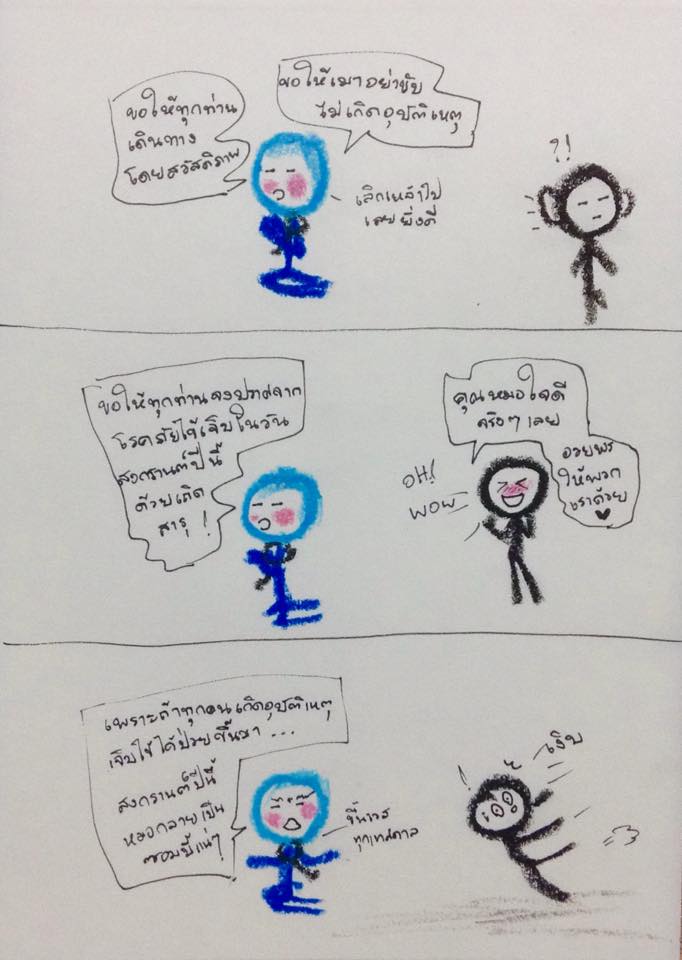 ขอให้ทุกท่าน
เดินทาง
โดยสวัสดิภาพ
ขอให้เมาอย่าขับ
ไม่เกิดอุบัติเหตุ
เลิกเหล้าไป
เลยยิ่งดี
?!
ขอให้ทุกท่านจงปราศจาก
โรคภัยไข้เจ็บในวัน
สงกรานต์ปีนี้
ด้วยเถิด
สาธุ!
คุณหมอใจดี
จริงๆ เลย
อวยพร
ให้พวก
เราด้วย
OH!
WOW
เพราะถ้าทุกคนเกิดอุบัติเหตุ
เจ็บไข้ได้ป่วยขึ้นมา ...
สงกรานต์ปีนี้
หมอกลายเป็น
ซอมบี้แน่ๆ!
ขึ้นเวร
ทุกเทศกาล
เงิบ